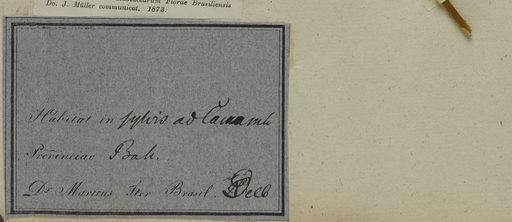 Florae Brasiliensis
Do. J. Müller communicat. 1873.
Habitat in sylvis ad Camamu
Provinciae Bah.
Dr. Martius Iter Brasil. Dec